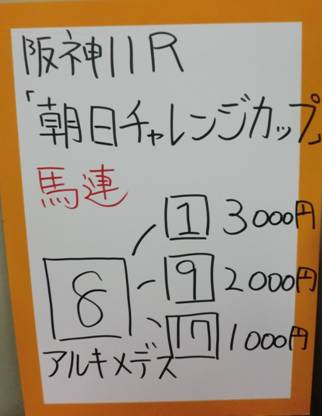 阪神11R
「朝日チャレンジカップ」
馬連
1 3000円
9 2000円
8
17 1000円
アルキメデス